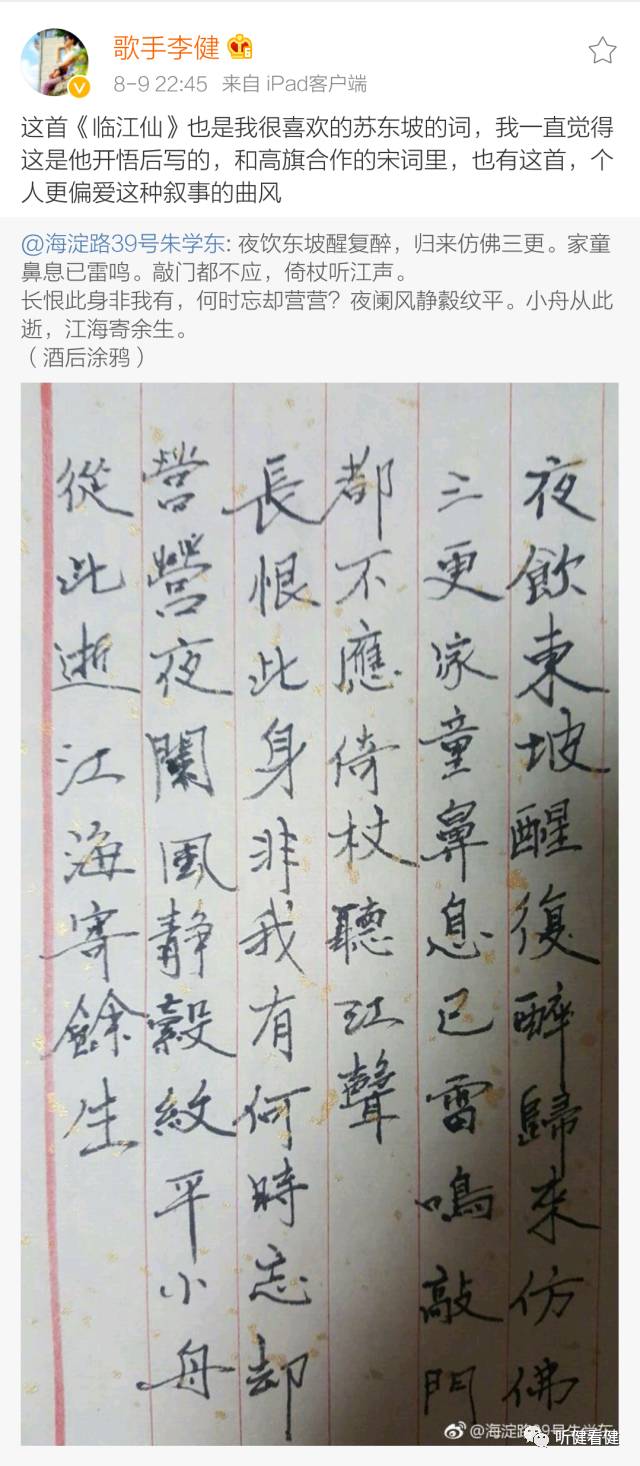 歌手李健
8-9 22:45 来自 iPad客户端
这首《临江仙》也是我很喜欢的苏东坡的词，我一直觉得
这是他开悟后写的，和高旗合作的宋词里，也有这首，个
人更偏爱这种叙事的曲风
@海淀路39号朱学东: 夜饮东坡醒复醉，归来仿佛三更。家童
鼻息已雷鸣。敲门都不应，倚杖听江声。
长恨此身非我有，何时忘却营营？夜阑风静縠纹平。小舟从此
逝，江海寄余生。
（酒后涂鸦）
夜飲東坡醒復醉歸来仿佛
三更家童鼻息已雷鳴敲門
都不應倚杖聽江聲
長恨此身非我有何時忘却
營營夜闌風静縠紋平小舟
從此逝江海寄餘生
@海淀路39号朱学东
听健看健